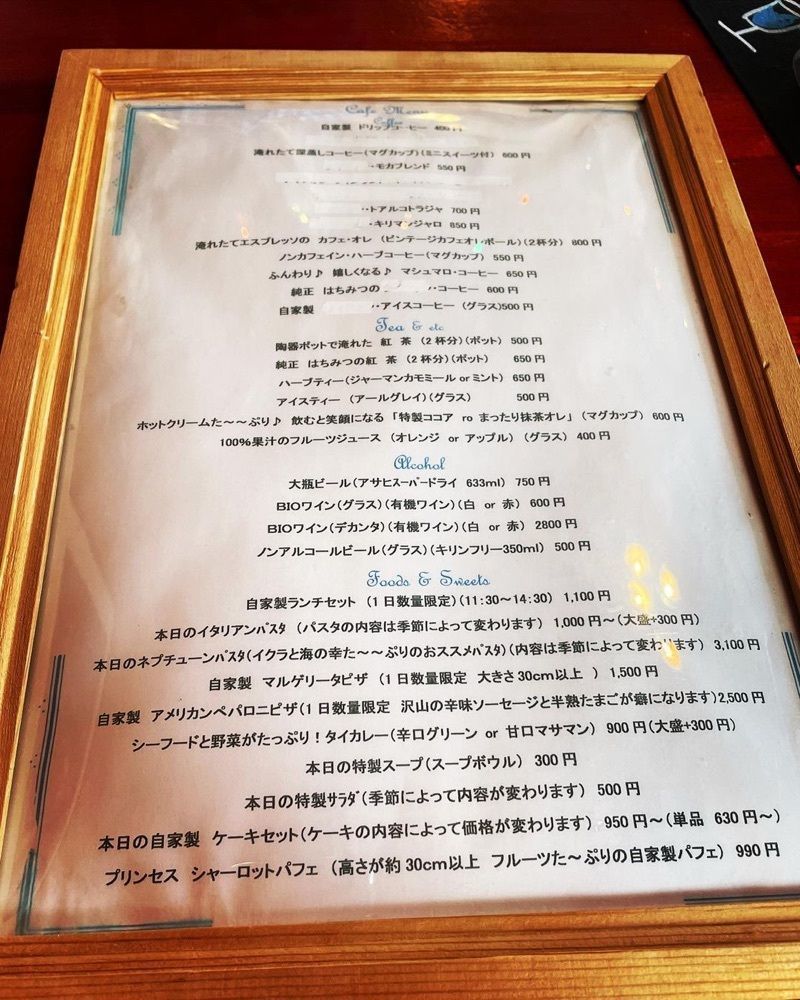 Cafe Menu
Coffee
自家製 ドリップコーヒー 400円
淹れたて深蒸しコーヒー(マグカップ)(ミニスイーツ付) 600円
・モカブレンド 550円
・・トアルコトラジャ 700円
・キリマンジャロ 850円
淹れたてエスプレッソの カフェ・オレ (ビンテージカフェオレ・ボール)(2杯分) 800円
ノンカフェイン・ハーブコーヒー(マグカップ) 550円
ふんわり♪ 嬉しくなる♪ マシュマロ・コーヒー 650円
純正 はちみつの ・・コーヒー 600円
自家製 ・・アイスコーヒー (グラス)500円
Tea & etc
陶器ポットで淹れた 紅 茶 (2杯分)(ポット) 500円
純正 はちみつの紅 茶 (2杯分)(ポット) 650円
ハーブティー(ジャーマンカモミール or ミント) 650円
アイスティー (アールグレイ)(グラス) 500円
ホットクリームた~~ぷり♪ 飲むと笑顔になる 「特製ココア ro まったり抹茶オレ」 (マグカップ) 600円
100%果汁のフルーツジュース (オレンジ or アップル) (グラス) 400円
Alcohol
大瓶ビール(アサヒスーパードライ 633ml) 750円
BIOワイン(グラス)(有機ワイン)(白 or 赤) 600円
BIOワイン(デカンタ)(有機ワイン)(白 or 赤) 2800円
ノンアルコールビール(グラス)(キリンフリー350ml) 500円
Foods & Sweets
自家製ランチセット (1日数量限定)(11:30~14:30) 1,100円
本日のイタリアンパスタ (パスタの内容は季節によって変わります) 1,000円~(大盛+300円)
本日のネプチューンパスタ(イクラと海の幸た~~ぷりのおススメパスタ)(内容は季節によって変わります) 3,100円
自家製 マルゲリータピザ (1日数量限定 大きさ30cm以上 ) 1,500円
自家製 アメリカンペパロニピザ(1日数量限定 沢山の辛味ソーセージと半熟たまごが癖になります)2,500円
シーフードと野菜がたっぷり!タイカレー(辛口グリーン or 甘口マサマン) 900円(大盛+300円)
本日の特製スープ(スープボウル) 300円
本日の特製サラダ(季節によって内容が変わります) 500円
本日の自家製 ケーキセット(ケーキの内容によって価格が変わります) 950円~(単品 630円~)
プリンセス シャーロットパフェ (高さが約30cm以上 フルーツた~ぷりの自家製パフェ) 990円